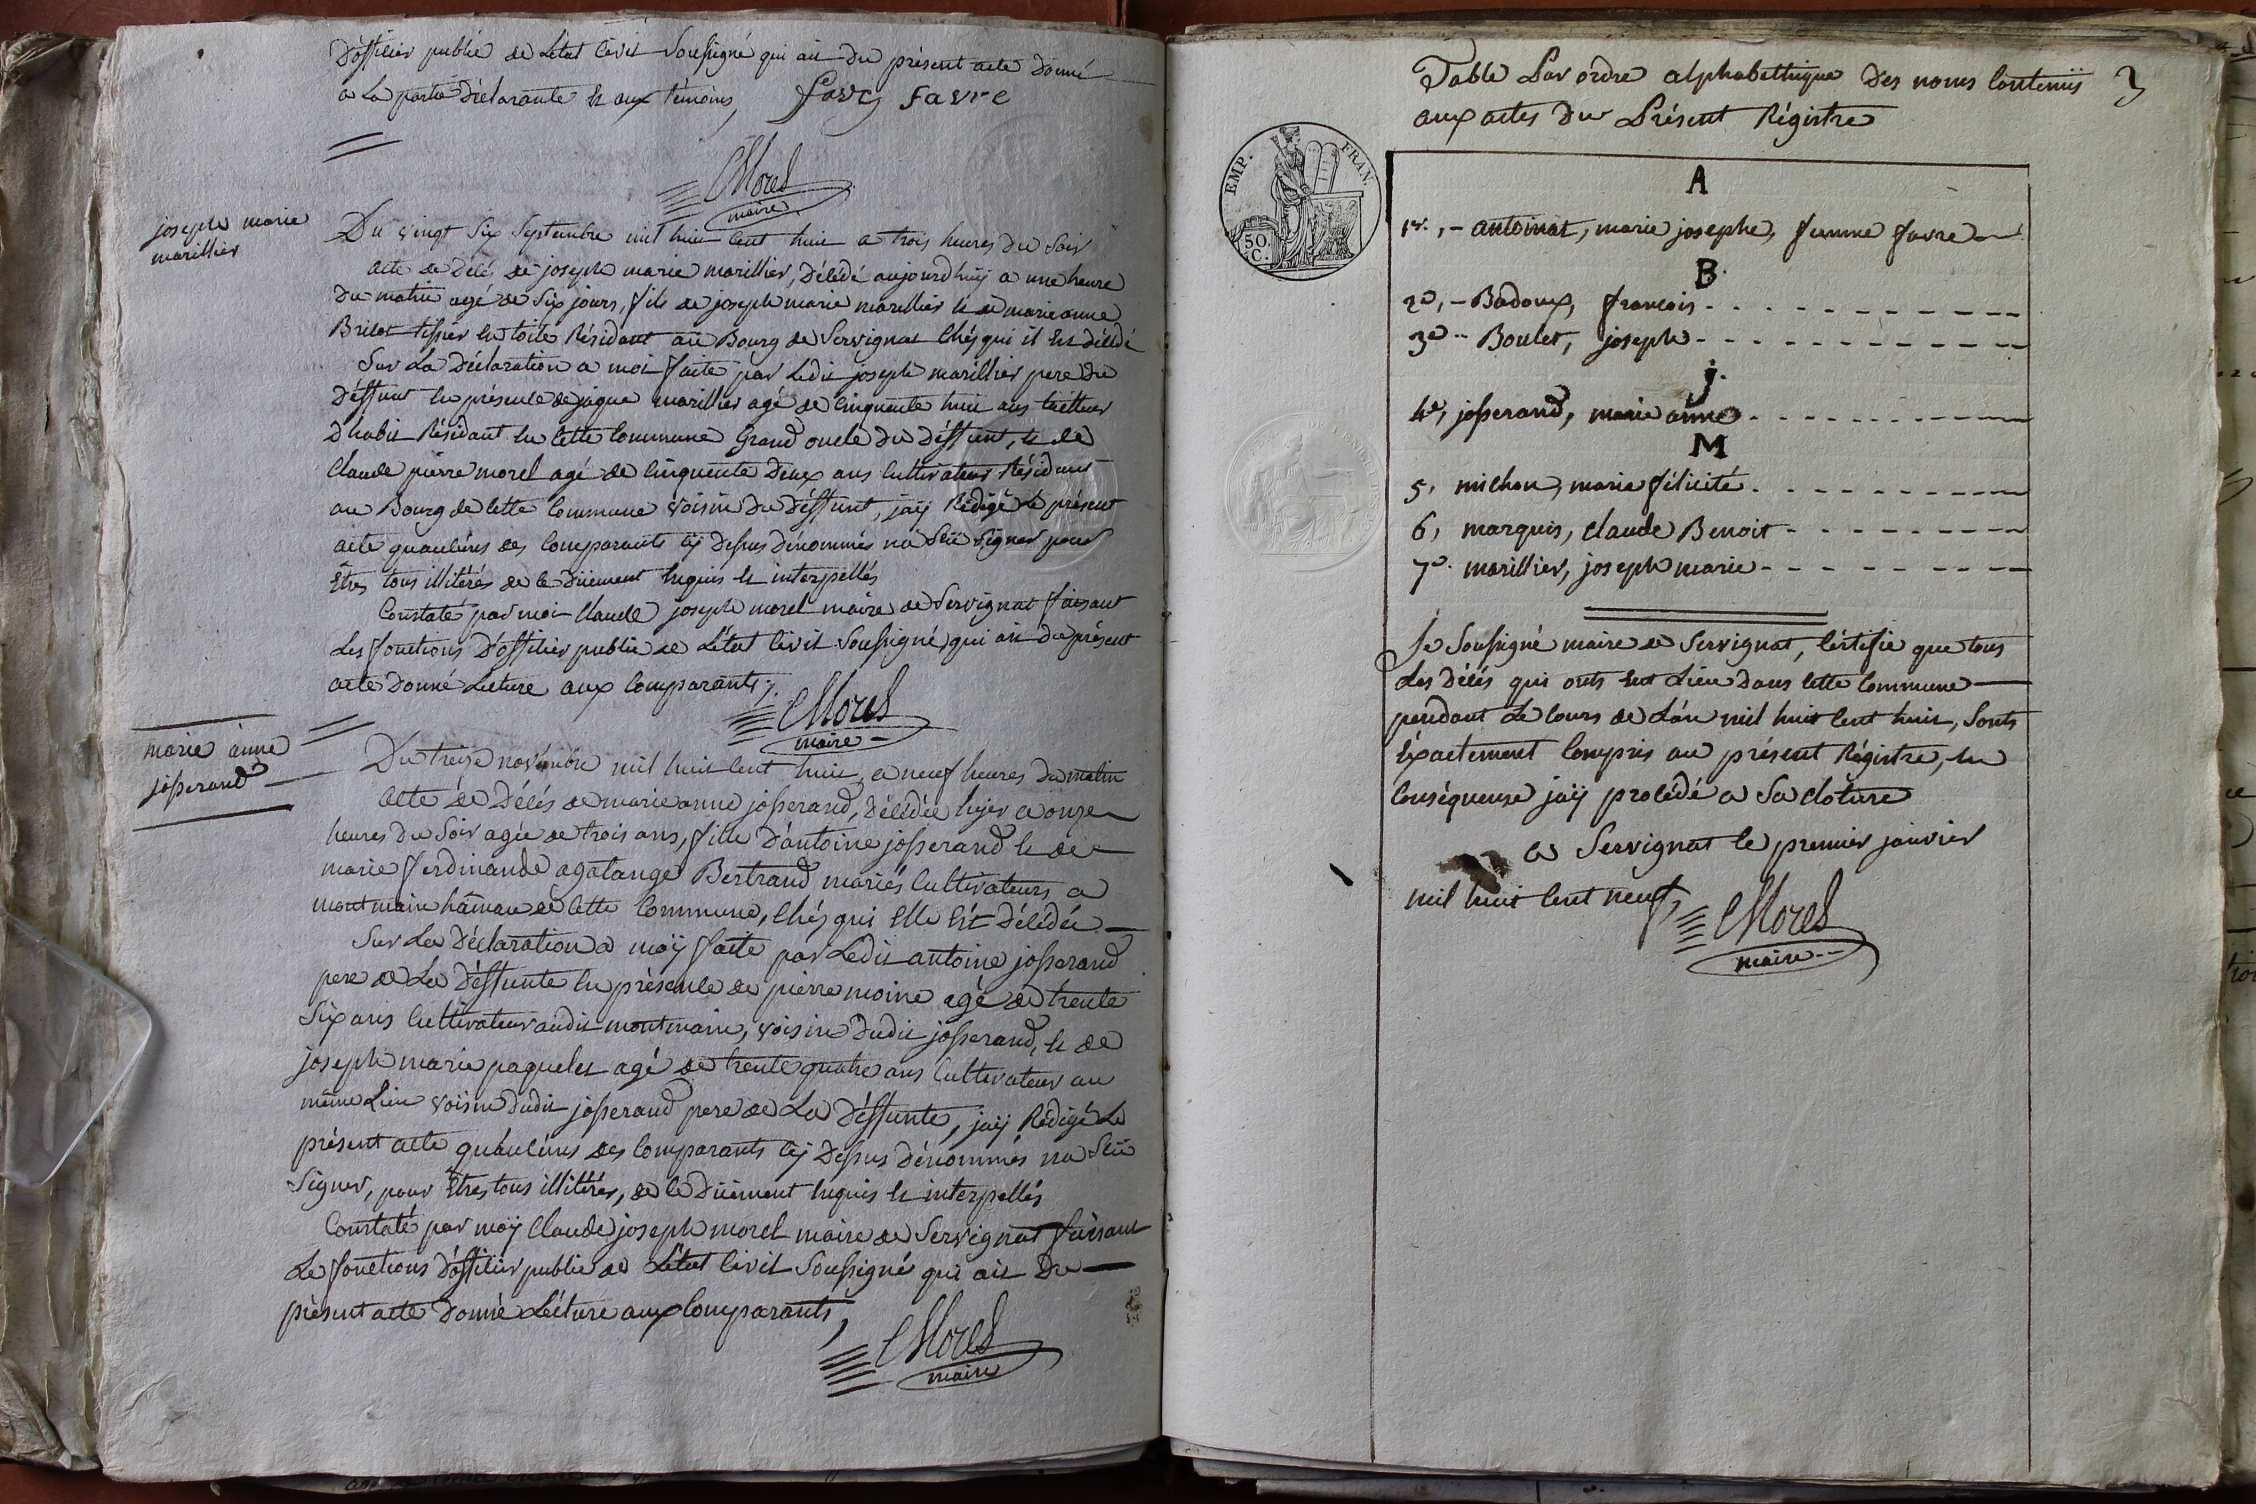 D'officier public de L'état Civil Soussigné qui ait du présent acte donné
a La partie Déclarante et aux témoins, favre
CMorel
maire
joseph marie
marillier
Du vingt Six Septembre mil huit cent huit a trois heures du Soir
acte de Décé de joseph marie marillier, Décédé aujourdhuÿ a une heure
Du matin agé de Six jours, fils de joseph marie marillier et de marie anne
tissier en toile Résidant au Bourg de Servignat Chés qui il Est décédé
Sur La Déclaration a moi faite par Ledit joseph marillier pere du
Déffunt En présence de jaque marillier agé de Cinquente huit ans tailleur
Dhabit Résidant En Cette Commune Grand oncle du Déffunt, et de
Claude pierre morel agé de Cinquente Deux ans Cultivateur Résidant
au Bourg de Cette Commune voisin du Déffunt, jaÿ Rédigé Le présent
acte quauCuns des Comparants Cÿ Dessus dénommés na Sçu Signer pour
Être tous illitérés de Ce Düement Enquis et interpellés
Constaté par moi Claude joseph morel maire de Servignat faisant
Les fonctions D'officier public de L'état Civil Soussigné, qui ait du présent
acte Donné Lecture aux Comparants,
CMorel
maire
marie anne
josserand
Du treize novembre mil huit Cent huit, a neuf heures du matin
acte de Décés de marie anne josserand, Décédée hyer a onze
heures du Soir agée de trois ans, fille D'antoine josserand et de
marie ferdinande agatange Bertrand mariés Cultivateurs a
montmain hameau de Cette Commune, Chés qui Elle Est Décédée
Sur La Déclaration a moÿ faite par Ledit antoine josserand
pere de La Déffunte En présence de pierre moine agé de trente
Six ans Cultivateur audit montmain, voisin Dudit josserand, et de
joseph marie paquelet agé de trente quatre ans Cultivateur au
même Lieu voisin Dudit josserand pere de La Déffunte, jaÿ Rédigé Le
présent acte quauCuns des Comparants Cÿ Dessus dénommés na Sçu
Signer, pour Etres tous illitérés, de Ce Düement Enquis et interpellés
Constaté par moÿ Claude joseph morel maire de Servignat faisant
Le fonctions D'officier public de L'état Civil Soussigné qui ait Du
présent acte Donné Lecture aux Comparants,
CMorel
maire
Table Par ordre alphabethique Des noms Contenüs
aux actes du Présent Régistre
3
EMP. FRAN.
50 C.
A
1er, - antoinat, marie josephe, femme favre
B
2e, - Badoux, francois
3e - Boulet, joseph
j.
4e, josserand, marie anne
M
5, michon, marie félicité
6, marquis, Claude Benoit
7e. marillier, joseph marie
Je Soussigné maire de Servignat, Certifie que tous
Les Décés qui onts Eut Lieu dans Cette Commune
pendant Le Cours de L'an mil huit Cent huit, Sonts
Éxactement Compris au présent Régistre, En
Conséquense jaÿ procédé a Sa Cloture
a Servignat le premier janvier
mil huit Cent neuf,
CMorel
maire